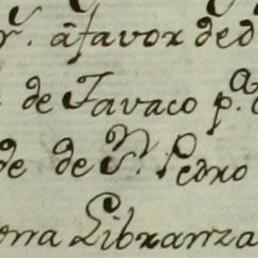 r. â favor de d
de Tavaco p.ª
de de Sn. Pedro
Libranza